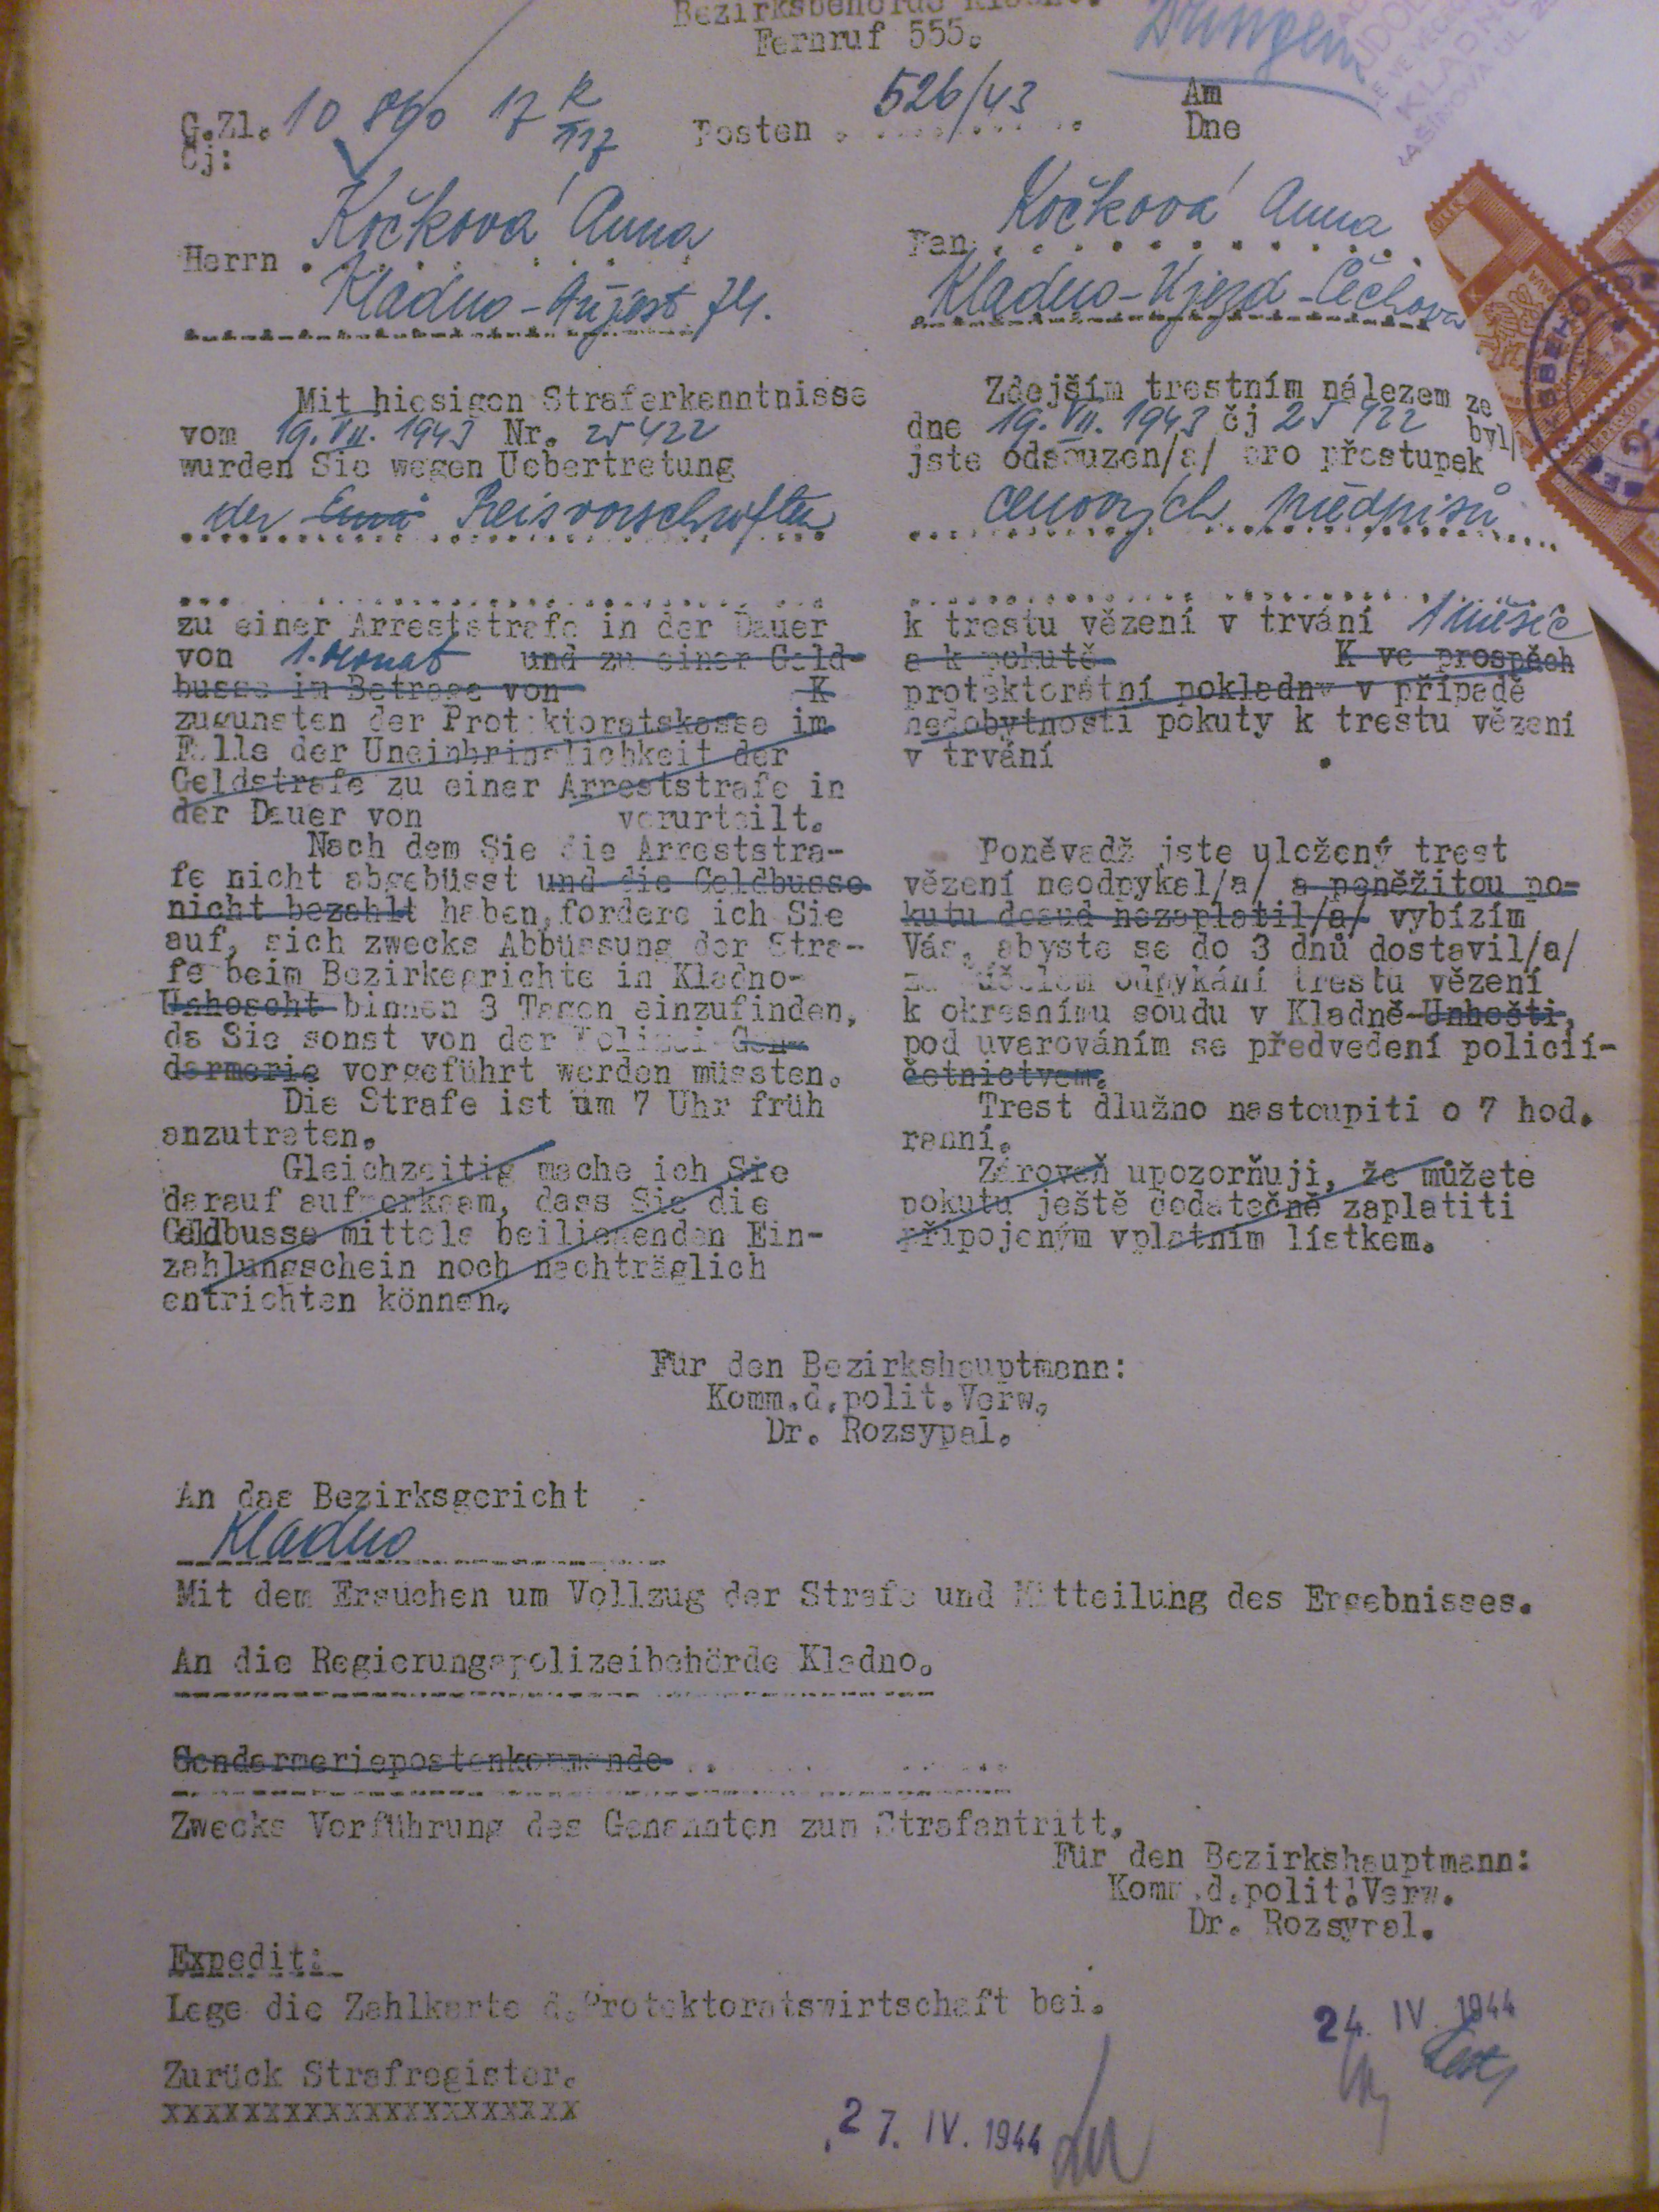 Bezirksbehörde Kladno.
Fernruf 555.
Dringend
G.Zl. 10
Čj:
Posten 526/43
Am
Dne
Kočková Anna
Herrn
Kladno-Aujest 74.
Kočková Anna
Pan
Kladno-Ujezd-Čechova
Mit hiesigen Straferkenntnisse
vom 19. VII. 1943 Nr. 25422
wurden Sie wegen Uebertretung
der Preisvorschriften
zu einer Arreststrafe in der Dauer
von 1. Monat und zu einer Geld-
busse im Betrage von K
zugunsten der Protektoratskasse im
Falle der Uneinbringlichkeit der
Geldstrafe zu einer Arreststrafe in
der Dauer von verurteilt.
Nach dem Sie die Arreststra-
fe nicht abgebüsst und die Geldbusse
nicht bezahlt haben, fordere ich Sie
auf, sich zwecks Abbüssung der Stra-
fe beim Bezirkegrichte in Kladno-
Unhoscht binnen 3 Tagen einzufinden,
da Sie sonst von der Polizei Gen-
darmerie vorgeführt werden müssten.
Die Strafe ist um 7 Uhr früh
anzutreten.
Gleichzeitig mache ich Sie
darauf aufmerksam, dass Sie die
Geldbusse mittels beiliegenden Ein-
zahlungschein noch nachträglich
entrichten können.
Zdejším trestním nálezem ze
dne 19. VII. 1943 čj 25422 byl
jste odsouzen/a/ pro přestupek
cenových předpisů
k trestu vězení v trvání 1 měsíc
a k pokutě K ve prospěch
protektorátní pokladny v případě
nedobytnosti pokuty k trestu vězení
v trvání .
Poněvadž jste uložený trest
vězení neodpykal/a/ a peněžitou po-
kutu dosud nezaplatil/a/ vybízím
Vás, abyste se do 3 dnů dostavil/a/
za účelem odpykání trestu vězení
k okresnímu soudu v Kladně-Unhošti,
pod uvarováním se předvedení policií-
četnictvem.
Trest dlužno nastoupiti o 7 hod.
ranní.
Zároveň upozorňuji, že můžete
pokutu ještě dodatečně zaplatiti
připojeným vplatním lístkem.
Für den Bezirkshauptmann:
Komm.d.polit.Verw.
Dr. Rozsypal.
An das Bezirksgericht
Kladno
Mit dem Ersuchen um Vollzug der Strafe und Mitteilung des Ergebnisses.
An die Regierungspolizeibehörde Kladno.
Gendarmeriepostenkommando
Zwecks Vorführung des Genannten zum Strafantritt.
Für den Bezirkshauptmann:
Komm.d.polit.Verw.
Dr. Rozsypal.
Expedit:
Lege die Zahlkarte d.Protektoratswirtschaft bei.
24. IV. 1944
Zurück Strafregister.
xxxxxxxxxxxxxxxxxxxxx
27. IV. 1944